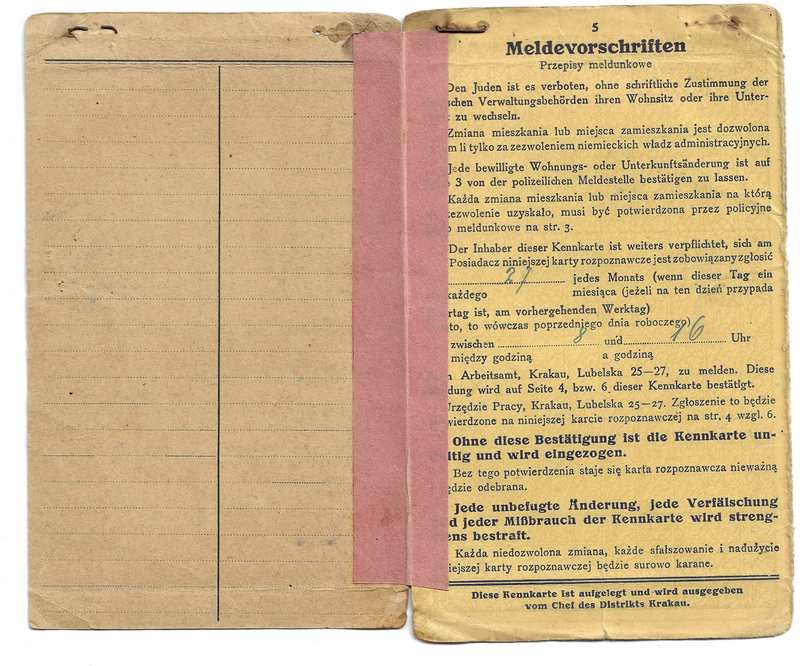 5
Meldevorschriften
Przepisy meldunkowe
Den Juden ist es verboten, ohne schriftliche Zustimmung der
schen Verwaltungsbehörden ihren Wohnsitz oder ihre Unter-
zu wechseln.
Zmiana mieszkania lub miejsca zamieszkania jest dozwolona
m li tylko za zezwoleniem niemieckich władz administracyjnych.
Jede bewilligte Wohnungs- oder Unterkunftsänderung ist auf
3 von der polizeilichen Meldestelle bestätigen zu lassen.
Każda zmiana mieszkania lub miejsca zamieszkania na którą
zezwolenie uzyskało, musi być potwierdzona przez policyjne
o meldunkowe na str. 3.
Der Inhaber dieser Kennkarte ist weiters verpflichtet, sich am
Posiadacz niniejszej karty rozpoznawcze jest zobowiązany zgłosić
27 jedes Monats (wenn dieser Tag ein
każdego miesiąca (jeżeli na ten dzień przypada
rtag ist, am vorhergehenden Werktag)
to, to wówczas poprzedniego dnia roboczego)
zwischen 8 und 16 Uhr
między godziną a godziną
Arbeitsamt, Krakau, Lubelska 25—27, zu melden. Diese
dung wird auf Seite 4, bzw. 6 dieser Kennkarte bestätigt.
Urzędzie Pracy, Krakau, Lubelska 25—27. Zgłoszenie to będzie
wierdzone na niniejszej karcie rozpoznawczej na str. 4 wzgl. 6.
Ohne diese Bestätigung ist die Kennkarte un-
ltig und wird eingezogen.
Bez tego potwierdzenia staje się karta rozpoznawcza nieważną
ędzie odebrana.
Jede unbefugte Änderung, jede Verfälschung
d jeder Mißbrauch der Kennkarte wird streng-
ens bestraft.
Każda niedozwolona zmiana, każde sfałszowanie i nadużycie
iejszej karty rozpoznawczej będzie surowo karane.
Diese Kennkarte ist aufgelegt und wird ausgegeben
vom Chef des Distrikts Krakau.